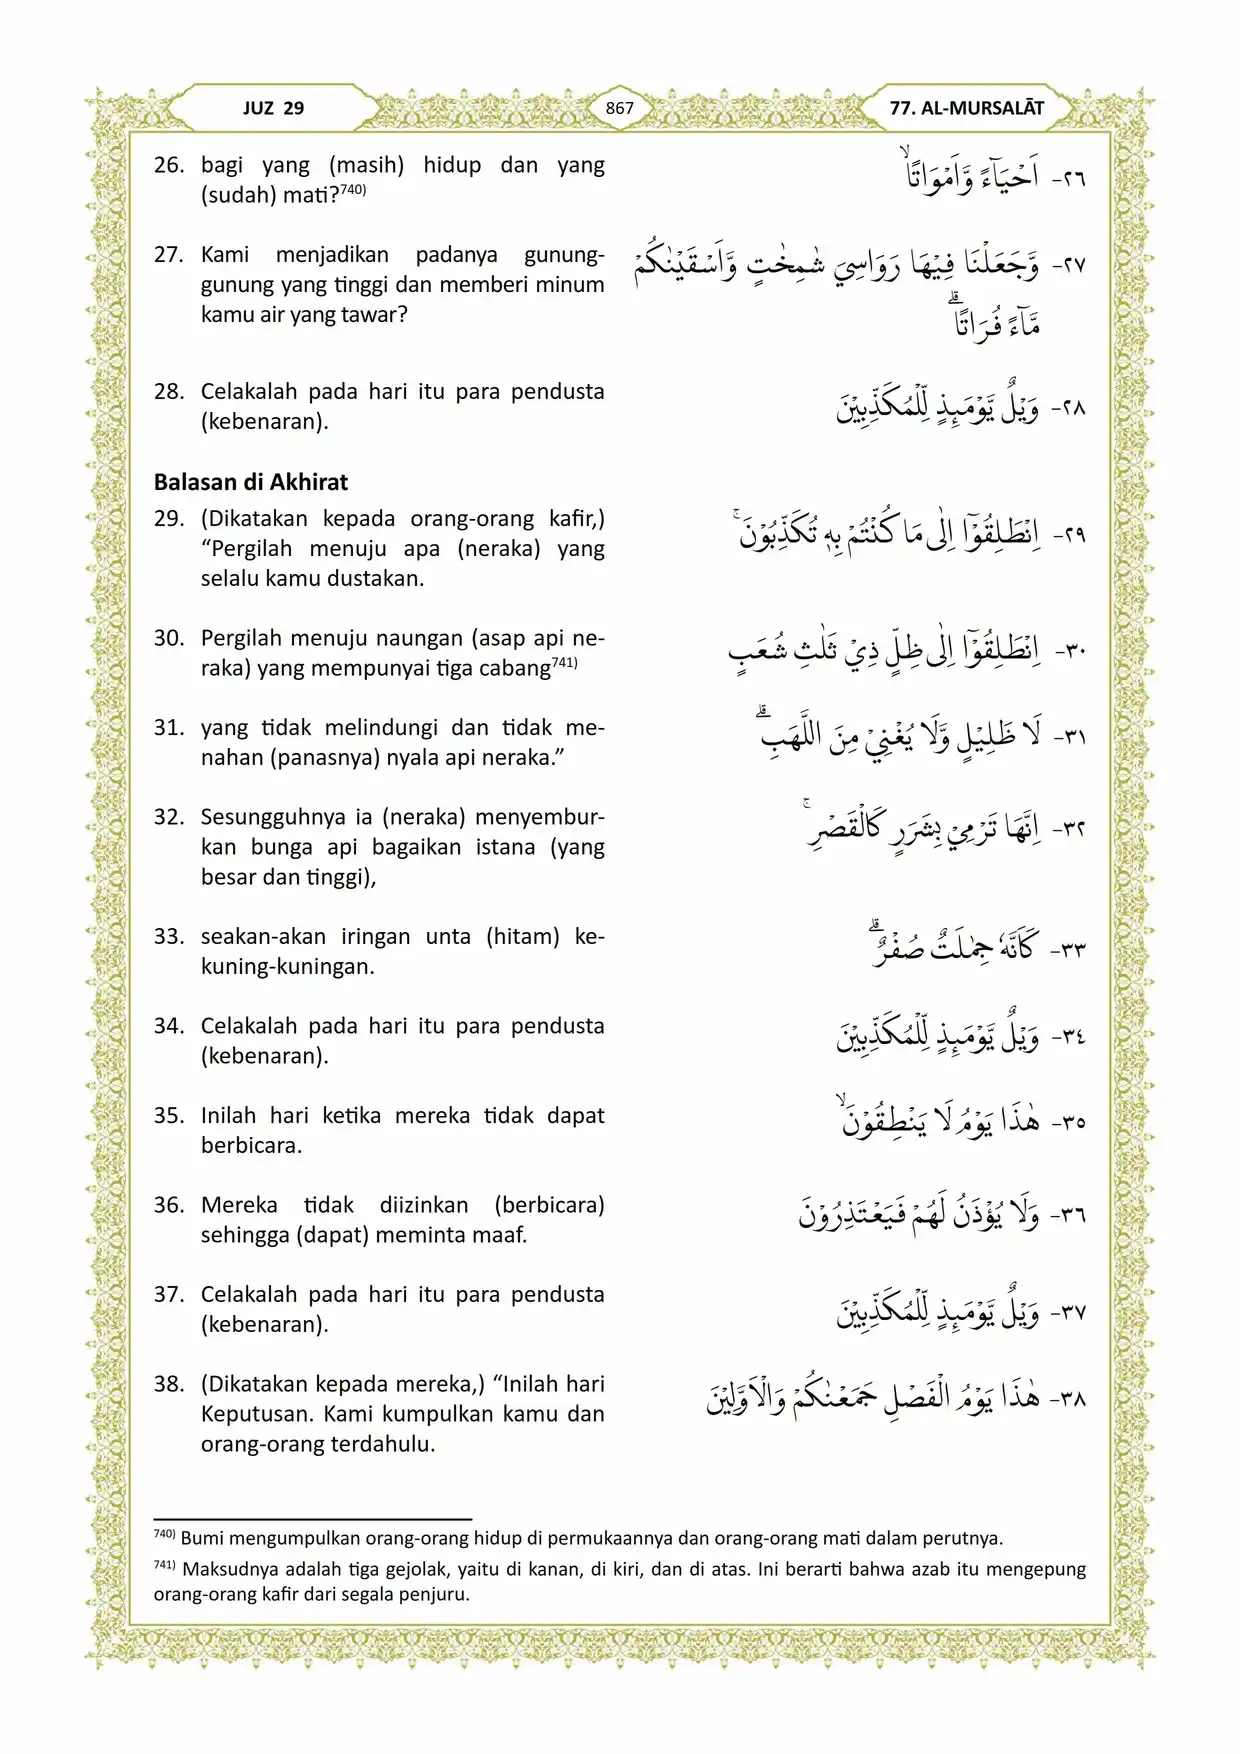 JUZ 29
867
77. AL-MURSALĀT
26. bagi yang (masih) hidup dan yang
(sudah) mati?740)
٢٦- اَحْيَاۤءً وَّاَمْوَاتًاۙ
27. Kami menjadikan padanya gunung-
gunung yang tinggi dan memberi minum
kamu air yang tawar?
٢٧- وَّجَعَلْنَا فِيْهَا رَوَاسِيَ شٰمِخٰتٍ وَّاَسْقَيْنٰكُمْ
مَّاۤءً فُرَاتًاۗ
28. Celakalah pada hari itu para pendusta
(kebenaran).
٢٨- وَيْلٌ يَّوْمَىِٕذٍ لِّلْمُكَذِّبِيْنَ
Balasan di Akhirat
29. (Dikatakan kepada orang-orang kafir,)
“Pergilah menuju apa (neraka) yang
selalu kamu dustakan.
٢٩- اِنْطَلِقُوْٓا اِلٰى مَا كُنْتُمْ بِهٖ تُكَذِّبُوْنَۚ
30. Pergilah menuju naungan (asap api ne-
raka) yang mempunyai tiga cabang741)
٣٠- اِنْطَلِقُوْٓا اِلٰى ظِلٍّ ذِيْ ثَلٰثِ شُعَبٍ
31. yang tidak melindungi dan tidak me-
nahan (panasnya) nyala api neraka.”
٣١- لَا ظَلِيْلٍ وَّلَا يُغْنِيْ مِنَ اللَّهَبِۗ
32. Sesungguhnya ia (neraka) menyembur-
kan bunga api bagaikan istana (yang
besar dan tinggi),
٣٢- اِنَّهَا تَرْمِيْ بِشَرَرٍ كَالْقَصْرِۚ
33. seakan-akan iringan unta (hitam) ke-
kuning-kuningan.
٣٣- كَاَنَّهٗ جِمٰلَتٌ صُفْرٌۗ
34. Celakalah pada hari itu para pendusta
(kebenaran).
٣٤- وَيْلٌ يَّوْمَىِٕذٍ لِّلْمُكَذِّبِيْنَ
35. Inilah hari ketika mereka tidak dapat
berbicara.
٣٥- هٰذَا يَوْمُ لَا يَنْطِقُوْنَۙ
36. Mereka tidak diizinkan (berbicara)
sehingga (dapat) meminta maaf.
٣٦- وَلَا يُؤْذَنُ لَهُمْ فَيَعْتَذِرُوْنَ
37. Celakalah pada hari itu para pendusta
(kebenaran).
٣٧- وَيْلٌ يَّوْمَىِٕذٍ لِّلْمُكَذِّبِيْنَ
38. (Dikatakan kepada mereka,) “Inilah hari
Keputusan. Kami kumpulkan kamu dan
orang-orang terdahulu.
٣٨- هٰذَا يَوْمُ الْفَصْلِ جَمَعْنٰكُمْ وَالْاَوَّلِيْنَ
740) Bumi mengumpulkan orang-orang hidup di permukaannya dan orang-orang mati dalam perutnya.
741) Maksudnya adalah tiga gejolak, yaitu di kanan, di kiri, dan di atas. Ini berarti bahwa azab itu mengepung
orang-orang kafir dari segala penjuru.